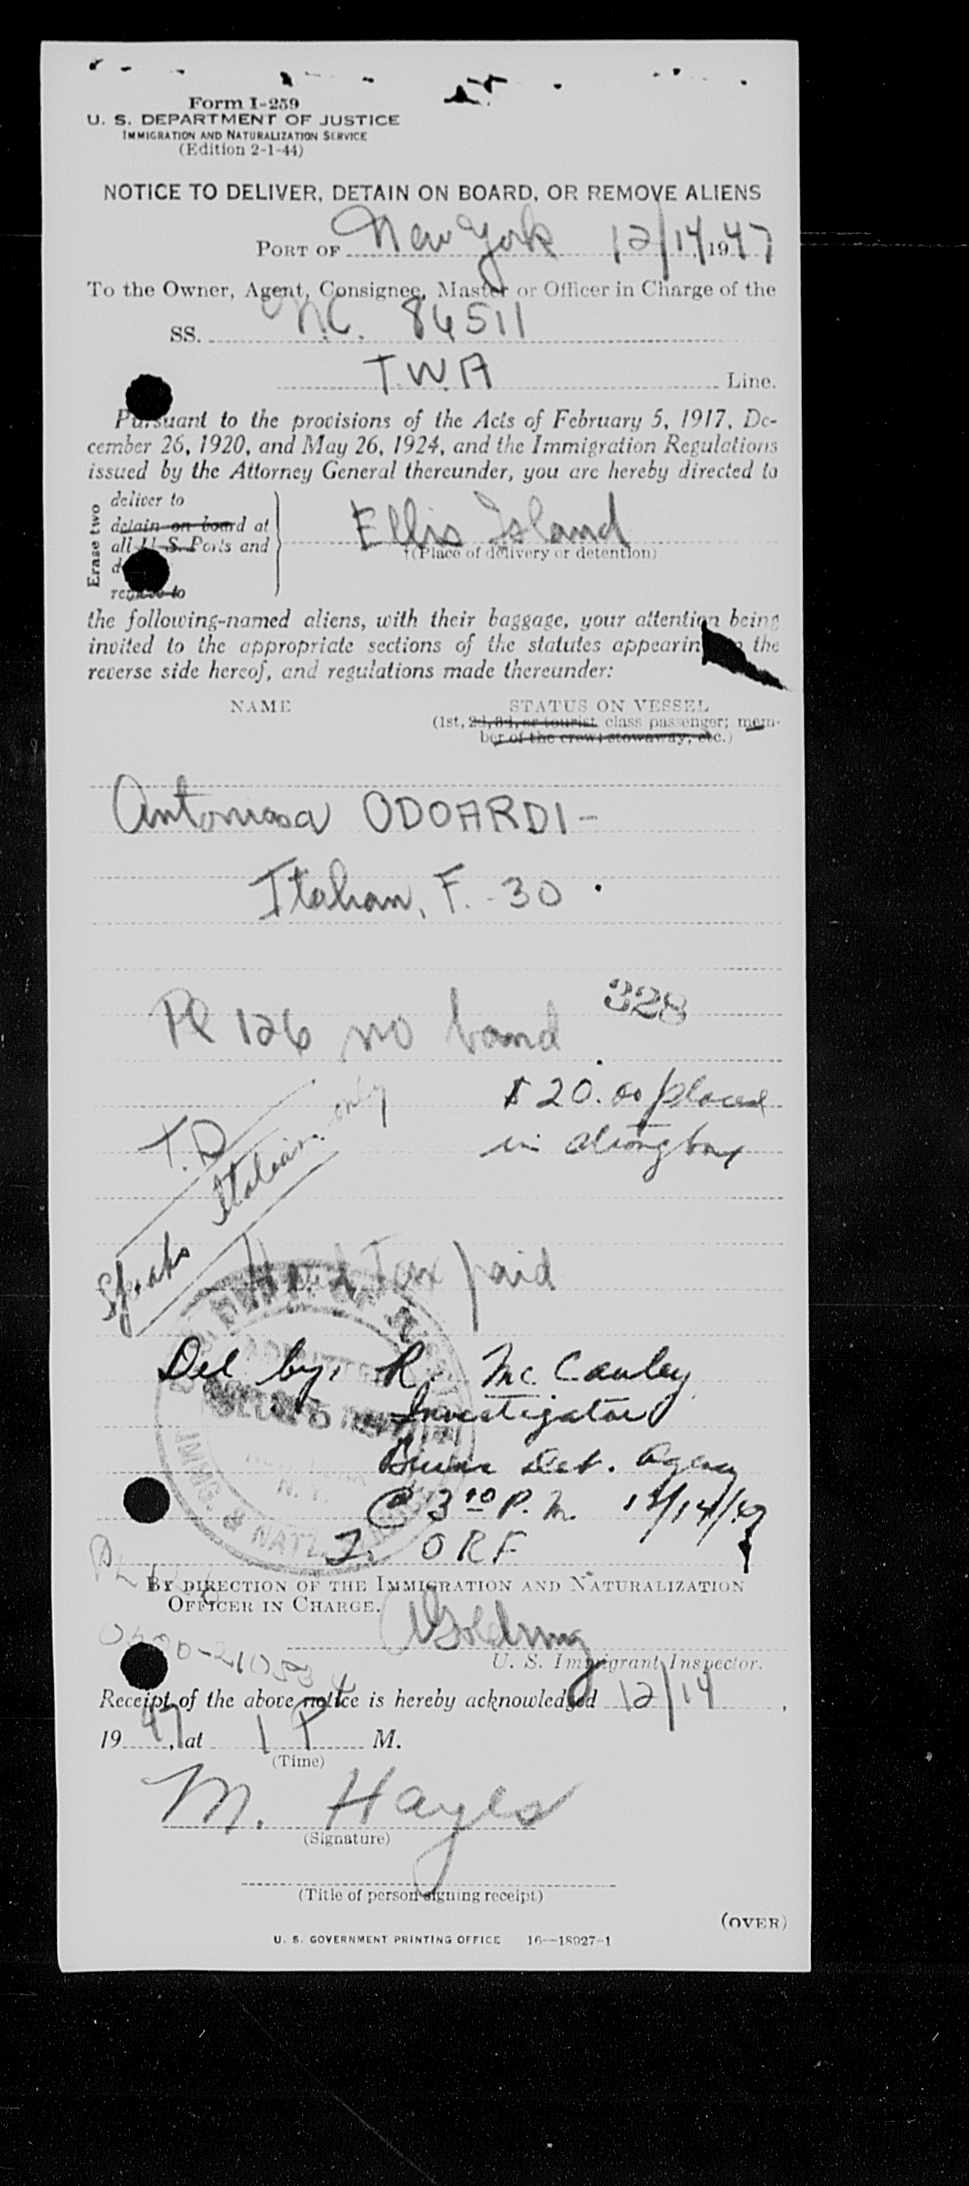 Form I-259
U. S. DEPARTMENT OF JUSTICE
IMMIGRATION AND NATURALIZATION SERVICE
(Edition 2-1-44)
NOTICE TO DELIVER, DETAIN ON BOARD, OR REMOVE ALIENS
PORT OF New York 12/14, 1947
To the Owner, Agent, Consignee, Master or Officer in Charge of the
SS. N.C. 86511
T.W.A Line.
Pursuant to the provisions of the Acts of February 5, 1917, De-
cember 26, 1920, and May 26, 1924, and the Immigration Regulations
issued by the Attorney General thereunder, you are hereby directed to
Erase two
deliver to
detain on board at
all U. S. Ports and
remove to
Ellis Island
(Place of delivery or detention)
the following-named aliens, with their baggage, your attention being
invited to the appropriate sections of the statutes appearing the
reverse side hereof, and regulations made thereunder:
NAME STATUS ON VESSEL
(1st, 2d, 3d, or tourist class passenger; mem-
ber of the crew; stowaway; etc.)
Antoniasa ODOARDI -
Italian, F. - 30
328
126 no band
$20.00 placed
in strong box
T.D
Speaks Italian only
Head Tax paid
Del by: R. McCauley
Investigator
Det. Agency
@ 3 10 P.M. 12/14/47
ORF
IMMIG. & NATZ.
N.Y.
BY DIRECTION OF THE IMMIGRATION AND NATURALIZATION
OFFICER IN CHARGE.
Goldring
U. S. Immigrant Inspector.
Receipt of the above notice is hereby acknowledged 12/14,
1947, at 1 P M.
(Time)
M. Hayes
(Signature)
(Title of person signing receipt)
(OVER)
U. S. GOVERNMENT PRINTING OFFICE 16—18027-1